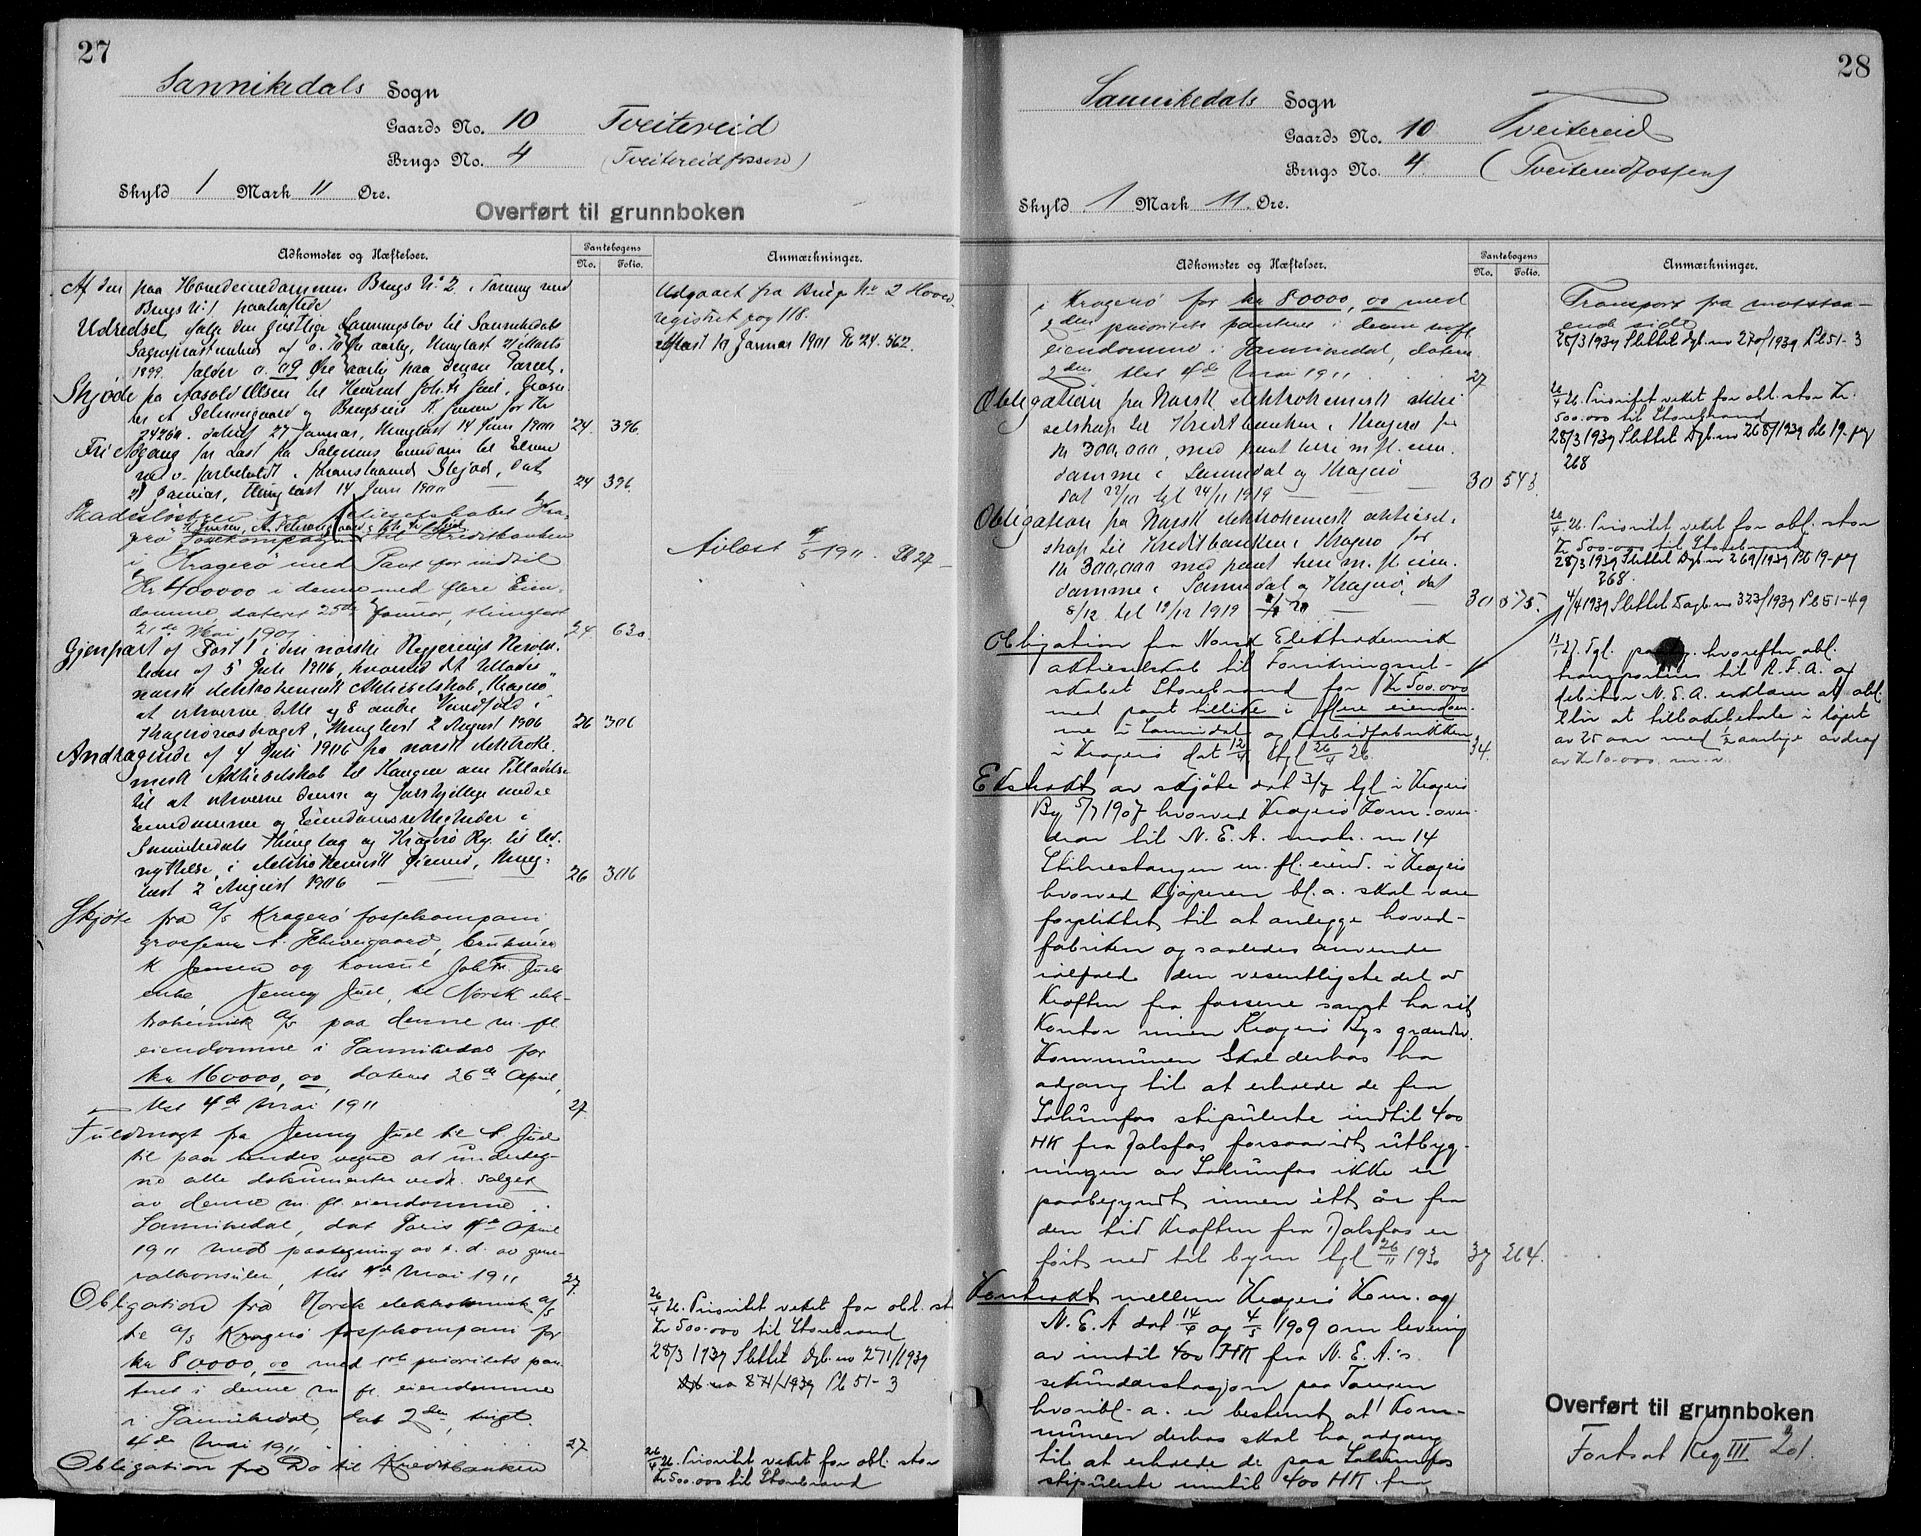 27
Sannikedals Sogn
Gaards No. 10 Tveitereid
Brugs No. 4 (Tveitereidfossene)
Skyld 1 Mark 11 Øre.
Overført til grunnboken
Adkomster og Hæftelser.
Pantebogens
No. Folio.
Anmærkninger.
Af den paa Hovedeiendommen Brugs No 2 i Forening med
Brugs No 1 paahæftede
Udredsel ifølge den geistlige Lønningslov til Sannikedals
Sogneprestembed af o. 70 Øre aarlig, thinglæst 21 Marts
1899. falder o. 09 Øre aarlig paa denne Parcel.
Udgaaet fra Brugs No 2 Hoved-
registret pag 118.
afløst 19 Januar 1901 Pb 24. 562.
Skjøde fra Aasold Olsen til Konsul Joh. Fr. Juel, Grosse-
rer A Schweigaard og Brugseier K. Jensen for Kr
24260. dateret 27 Januar, thinglæst 14 Juni 1900 24. 396.
Fri Adgang for Last fra Sælgerens Eiendom til Elven
ved v. forbeholdt i foranstaaende Skjøde, dat
27 Januar, thinglæst 14 Juni 1900 24 396.
Skadesløsbrev fra Aktieselskabet Kra-
K. Jensen, A. Schweigaard & Joh. Fr. Juel
gerø Fossekompagni til Kreditbanken
i Kragerø med Pant for indtil
Kr 400000 i denne med flere Eien-
domme, dateret 25de Januar, thinglæst
21de Mai 1901. 24 630.
Avlæst 4/5 1911. Pb 27 –
Gjenpart af Post 1 i den norske Regjerings Resolu-
tion af 5 Juli 1906, hvorved det tillades
norsk elektrokemisk Aktieselskab, "Kragerø"
at erhverve dette og 8 andre Vandfald i
Kragerøvasdraget, thinglæst 2 August 1906 26 306
Andragende af 4 Juli 1906 fra norsk elektroke-
misk Aktieselskab til Kongen om Tilladelse
til at erhverve denne og forskjellige andre
Eiendomme og Eiendomsrettigheder i
Sannikedals Thinglag og Kragerø By til Ud-
nyttelse i elektrokemisk Øiemed, thing-
læst 2 August 1906 26 306
Skjøte fra a/s Kragerø fossekompani,
grosserer A. Schweigaard, brukseier
K Jensen og konsul Joh Fr. Juels
enke, Jenny Juel, til Norsk elek-
trokemisk a/s paa denne m. fl.
eiendomme i Sannikedal for
kr 160000,00, dateret 26de April,
tlst 4de Mai 1911 27.
Fuldmagt fra Jenny Juel til A. Juel
til paa hendes vegne at underteg-
ne alle dokumenter vedr. salget
av denne m. fl. eiendomme i
Sannikedal, dat Paris 4de April
1911 med paategning av s. d. av gene-
ralkonsulen, tlst 4de Mai 1911 27.
Obligation fra Norsk elektrokemisk a/s
til a/s Kragerø fossekompani for
kr 80000,00 med 1ste prioritets pan-
teret i denne m fl. eiendomme
i Sannikedal, dat 2den, tingl.
4de Mai 1911 27.
26/4 26. Prioritet veket for obl. stor
Kr 500.000 til Storebrand
28/3 1939 Slettet Dgb. no 271/1939
Pb 51-3
Obligation fra Do til Kreditbanken
26/4 26. Prioritet veket for obl. stor
Kr 500.000 til Storebrand
28
Sannikedals Sogn
Gaards No. 10 Tveitereid
Brugs No. 4. (Tveitereidfossen)
Skyld 1 Mark 11. Øre.
Adkomster og Hæftelser.
Pantebogens
No. Folio.
Anmærkninger.
i Kragerø for kr 80000,00 med
2den prioritets panteret i denne m fl
eiendomme i Sannikedal, dateret
2den tlst 4de Mai 1911 27
Transport fra motstaa-
ende side
28/3 1939 Slettet Dgb. no 270/1939 Pb 51-3
Obligation fra Norsk elektrokemisk aktie-
selskap til Kreditbanken i Kragerø for
Kr 300,000, med pant heri m. fl. eien-
domme i Sannidal og Kragerø
dat 22/10 tgl 24/11 1919 30 543
26/4 26. Prioritet veket for obl. stor Kr.
500.000 til Storebrand
28/3 1939 Slettet Dgb. no 268/1939 Pb 19- pag
268
Obligation fra Norsk elektrokemisk aktiesel-
skap til Kreditbanken i Kragerø for
Kr 300,000 med pant heri m. fl. eien-
domme i Sannidal og Kragerø, dat
5/12 tgl 19/12 1919 30 575.
26/4 26. Prioritet veket for obl. stor
Kr 500.000 til Storebrand
28/3 1939 Slettet Dgb. no 269/1939 Pb 19- pag
268.
4/4 1939 Slettet Dagb. no 323/1939 Pb 51-49
Obligation fra Norsk Elektrokemisk
aktieselskab til Forsikringssel-
skabet Storebrand for Kr 500.000
med pant tillike i flere eiendom-
me i Sannidal og Karbidfabrikken
i Kragerø dat 12/4 tgl 26/4 26. 34.
13/1 27. Tgl. hvorefter obl.
transporteres til R. F. A. og
debitor N. E. A. erklærer at obl
blir at tilbakebetale i løpet
av 25 aar med 1/2 aarlige avdrag
av Kr 10.000. m. v.
Ekstrakt av skjøte dat 3/7 tgl i Kragerø
By 5/7 1907 hvorved Kragerø Kom. over-
drar til N. E. A. matr. nr 14
Stilnestangen m. fl. eiend. i Kragerø
hvorved Kjøperen bl. a. skal være
forpliktet til at anlegge hoved-
fabriken og saaledes anvende
ialfald den vesentligste del av
Kraften fra fossene samt ha sit
Kontor innen Kragerø Bys grænser.
Kommunen skal derhos ha
adgang til at erholde de fra
Lølumfos stipulerte indtil 400
HK fra Dalsfos forsaavidt utbyg-
ningen av Lølumfos ikke er
paabegyndt innen ett år fra
den tid Kraften fra Dalsfos er
ført ned til byen tgl 26/11 1930 37 264.
Kontrakt mellem Kragerø Kom. og
N. E. A dat 14/4 og 4/5 1909 om levering
av inntil 400 HK fra N. E. A.'s
sekundærstasjon paa Tangen
hvori bl. a. er bestemt at Kom-
munen derhos skal ha adgang
til at erholde de paa Lølumfos
stipulerte inntil 400 HK. fra
Overført til grunnboken
Fortsat Reg III 201.